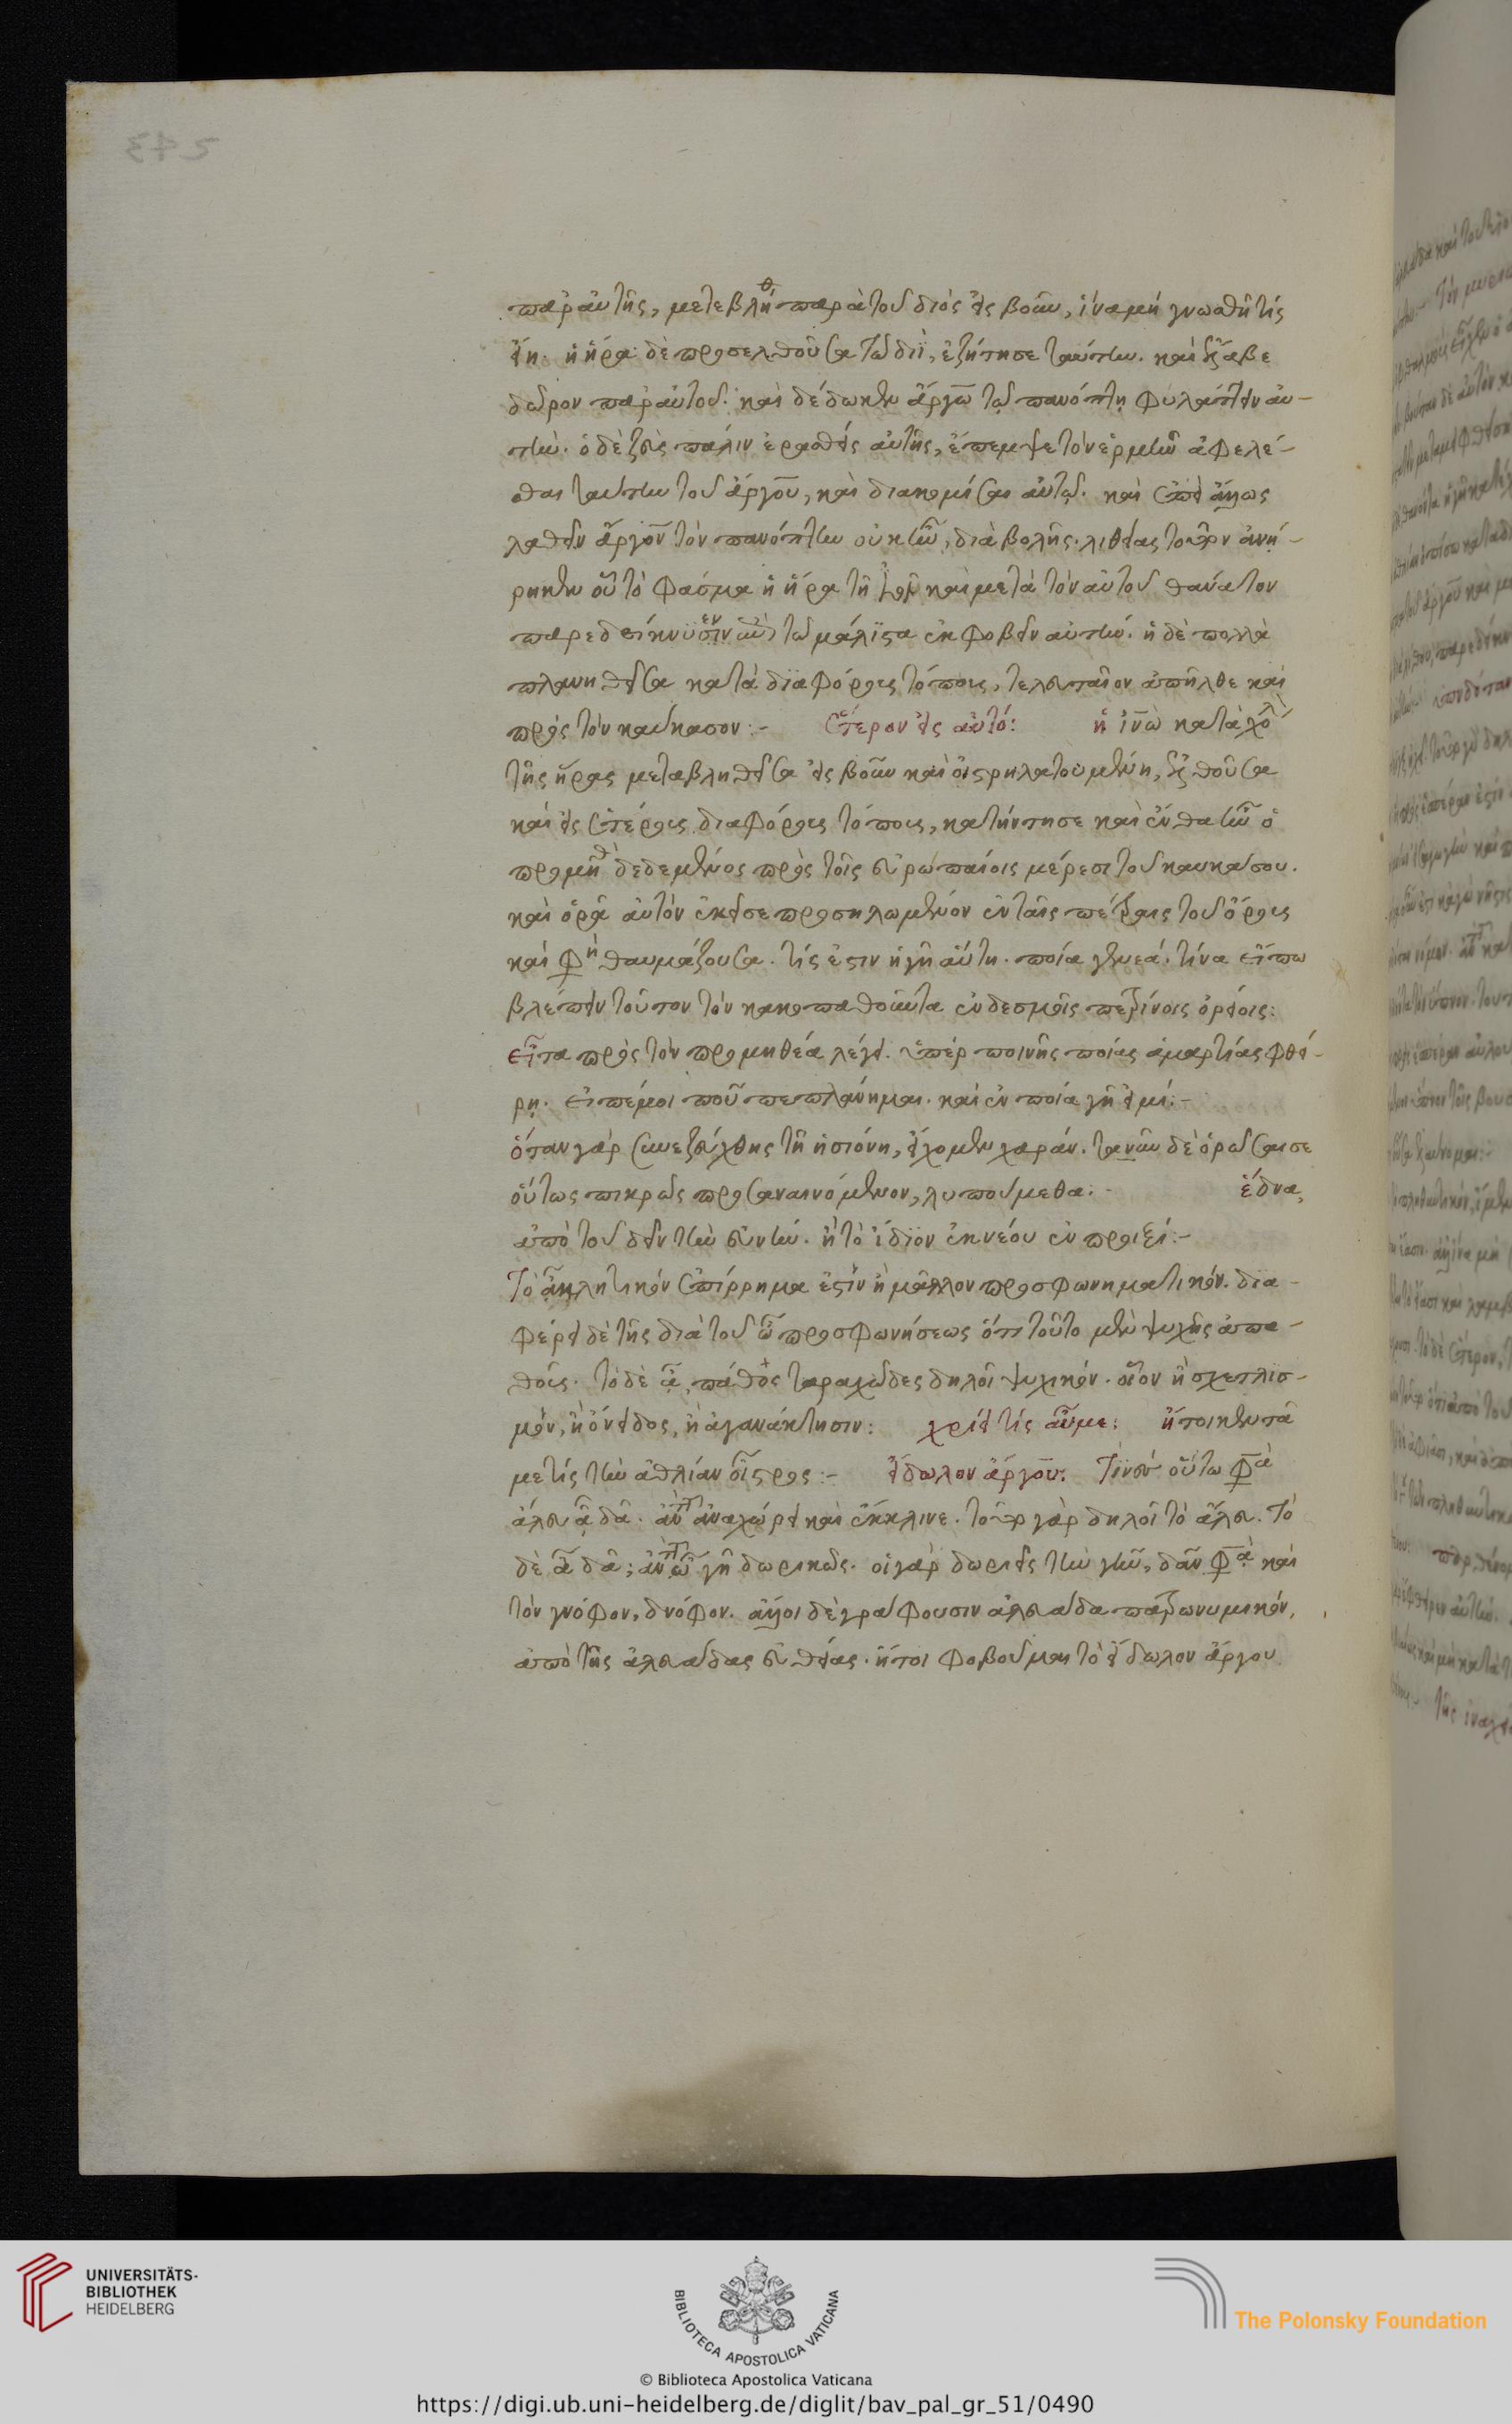 παρ' αὐτῆς, μετεβλήθη παρὰ τοῦ διὸς εἰς βοῦν, ἵνα μὴ γνωσθῇ τίς
εἴη. ἡ ἥρα δὲ προσελθοῦσα τῷ διῒ, ἐζήτησε ταύτην. καὶ ἔλαβε
δῶρον παρ' αὐτοῦ. καὶ δέδωκεν ἄργω τῷ πανόπτῃ φυλάττειν αὐ-
τήν. ὁ δὲ ζεὺς πάλιν ἐρασθεὶς αὐτῆς, ἔπεμψε τὸν ἑρμῆν ἀφελέ-
σθαι ταύτην τοῦ ἄργου, καὶ διακομίσαι αὐτῷ. καὶ ἐπεὶ ἄλλως
λαθεῖν ἄργον τὸν πανόπτην οὐκ ἦν, διὰ βολῆς λιθείας τοῦτον ἀνῄ-
ρηκεν οὗ τὸ φάσμα ἡ ἥρα τῇ ἰοῖ καὶ μετὰ τὸν αὐτοῦ θάνατον
παρεδείκνυεν τῷ μάλιστα ἐκφοβεῖν αὐτήν. ἡ δὲ πολλὰ
πλανηθεῖσα κατὰ διαφόρους τόπους, τελευταῖον ἀπῆλθε καὶ
πρὸς τὸν καύκασον:- ἕτερον εἰς αὐτό: ἡ ἰνὼ κατὰ χόλον
τῆς ἥρας μεταβληθεῖσα εἰς βοῦν καὶ οἰστρηλατουμένη, ἐλθοῦσα
καὶ εἰς ἑτέρους διαφόρους τόπους, κατήντησε καὶ ἔνθα ἦν ὁ
προμηθεὺς δεδεμένος πρὸς τοῖς εὐρωπαίοις μέρεσι τοῦ καυκάσου.
καὶ ὁρᾷ αὐτὸν ἐκεῖσε προσηλωμένον ἐν ταῖς πέτραις τοῦ ὄρους
καὶ φησὶ θαυμάζουσα. τίς ἐστιν ἡ γῆ αὕτη. ποία γενεά. τίνα εἴπω
βλέπειν τοῦτον τὸν κακοπαθοῦντα ἐν δεσμοῖς πετρίνοις ὀρείοις:
εἶτα πρὸς τὸν προμηθέα λέγει. ὑπὲρ ποινῆς ποίας ἁμαρτίας φθεί-
ρῃ. εἰπέ μοι ποῦ πεπλάνημαι. καὶ ἐν ποία γῇ εἰμί:-
ὅταν γὰρ συνεζεύχθης τῇ ἡσιόνη, εἴχομεν χαράν. τανῦν δὲ ὁρῶσαι σε
οὕτως πικρῶς προσαναινόμενον, λυπούμεθα:- ἕδνα,
ἀπὸ τοῦ δεῖν τὴν εὐνήν. ἢ τὸ ἴδιον ἐκ νέου ἐν προιξί:-
Τὸ ἆ κλητικὸν ἐπίρρημα ἐστὶν ἢ μᾶλλον προσφωνηματικόν. δια-
φέρει δὲ τῆς διὰ τοῦ ὦ προσφωνήσεως ὅτι τοῦτο μὲν ψυχῆς ἀπα-
θοῦς. τὸ δὲ ἆ, πάθος ταραχῶδες δηλοῖ ψυχικόν. οἷον ἢ σχετλιασ-
μόν, ἢ ὄνειδος, ἢ ἀγανάκτησιν: χρίει τίς αὖ με: ἤτοι κεντᾷ
με τίς τὴν ἀθλίαν οἶστρος:- εἴδωλον ἄργου: Τινὲς οὕτω φασὶ
ἄλευ ἆ δᾶ. ἀντὶ τοῦ ἀναχώρει καὶ ἔκκλινε. τοῦτο γὰρ δηλοῖ τὸ ἄλευ. Τὸ
δὲ ἆ δᾶ; ἀντὶ τοῦ ὦ γῆ δωρικῶς. οἱ γὰρ δωριεῖς τὴν γῆν, δᾶν φασὶ καὶ
τὸν γνόφον, δνόφον. ἄλλοι δὲ γράφουσιν ἀλευάδα πατρωνυμικόν,
ἀπὸ τῆς ἀλευάδας εὐθείας. ἤτοι φοβοῦμαι τὸ εἴδωλον ἄργου
UNIVERSITÄTS-
BIBLIOTHEK
HEIDELBERG
BIBLIOTECA APOSTOLICA VATICANA
The Polonsky Foundation
© Biblioteca Apostolica Vaticana
https://digi.ub.uni-heidelberg.de/diglit/bav_pal_gr_51/0490